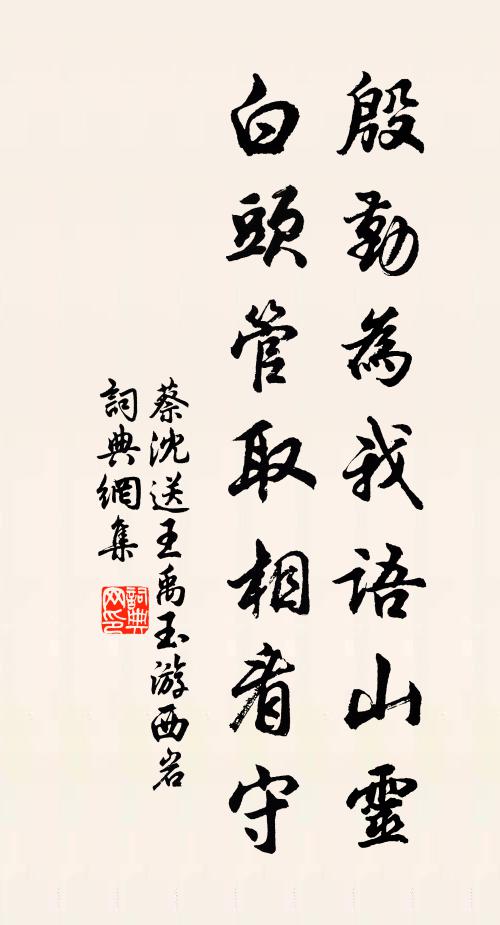 殷勤為我語山靈
白頭管取相看守
蔡沈送王禹玉游西岩
詞典網集
詞典网印